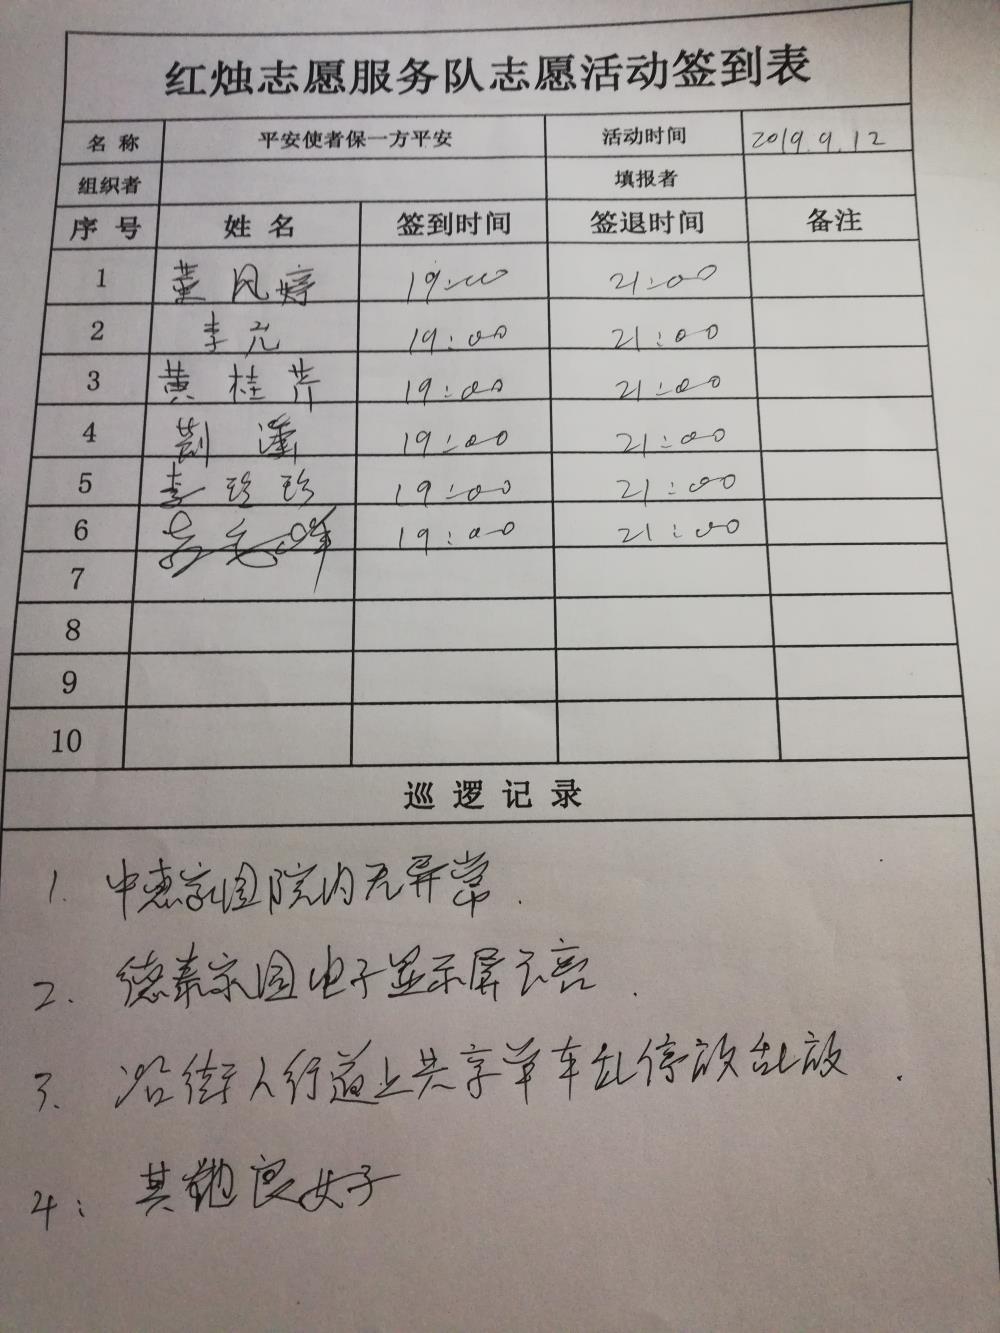 红烛志愿服务队志愿活动签到表
名称 平安使者保一方平安 活动时间 2019.9.12
组织者 填报者
序号 姓名 签到时间 签退时间 备注
1 董凤婷 19:00 21:00
2 李元 19:00 21:00
3 黄桂芹 19:00 21:00
4 19:00 21:00
5 李珍珍 19:00 21:00
6 19:00 21:00
7
8
9
10
巡逻记录
1. 中惠家园院内无异常.
2. 德泰家园电子显示屏不亮.
3. 沿街人行道上共享单车乱停放乱放.
4: 其他良好